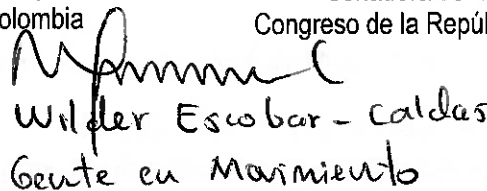 olombia
Congreso de la Repúl
Wilder Escobar - Caldas
Gente en Movimiento